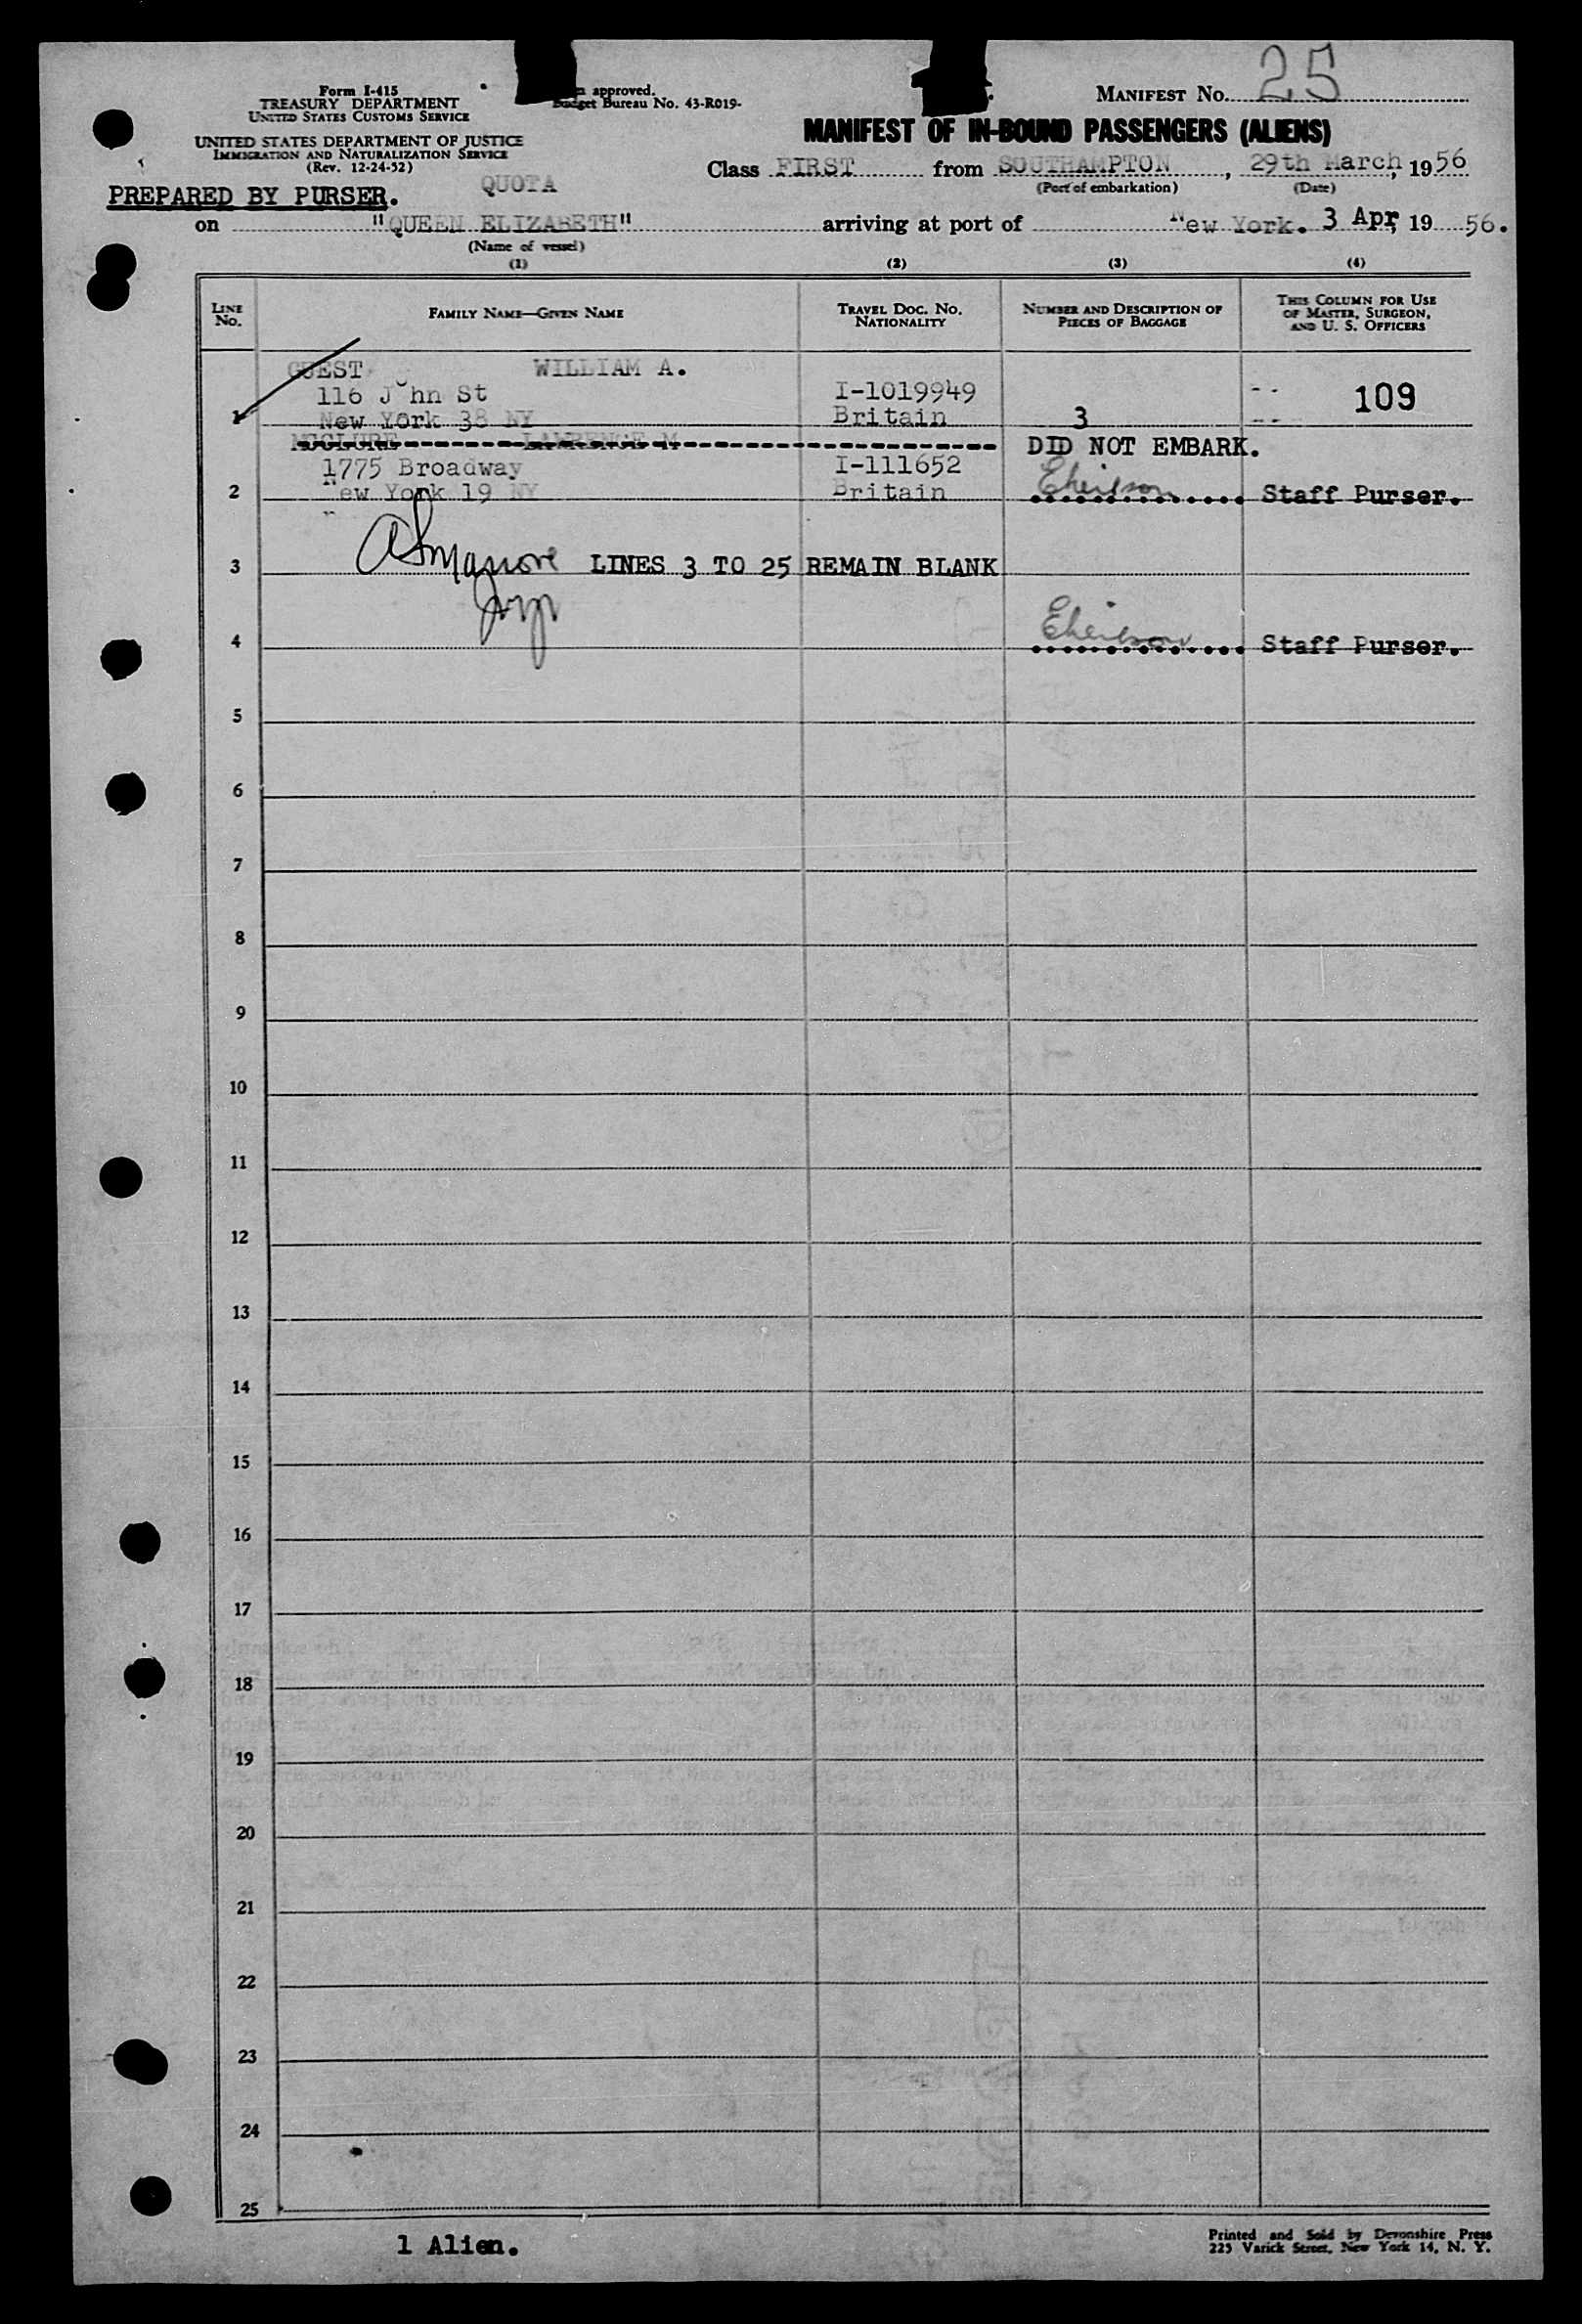 Form I-415
TREASURY DEPARTMENT
UNITED STATES CUSTOMS SERVICE
UNITED STATES DEPARTMENT OF JUSTICE
IMMIGRATION AND NATURALIZATION SERVICE
(Rev. 12-24-52)
approved.
Budget Bureau No. 43-R019-
MANIFEST NO. 25
MANIFEST OF IN-BOUND PASSENGERS (ALIENS)
Class FIRST from SOUTHAMPTON, 29th March, 1956
(Port of embarkation) (Date)
QUOTA
PREPARED BY PURSER.
on "QUEEN ELIZABETH" arriving at port of New York. 3 Apr, 19 56.
(Name of vessel)
(1) (2) (3) (4)
LINE NO. FAMILY NAME—GIVEN NAME TRAVEL DOC. NO. NATIONALITY NUMBER AND DESCRIPTION OF PIECES OF BAGGAGE THIS COLUMN FOR USE OF MASTER, SURGEON, AND U. S. OFFICERS
GUEST WILLIAM A.
116 John St I-1019949 109
1 New York 38 NY Britain 3
MCCLURE LAWRENCE M DID NOT EMBARK.
1775 Broadway I-111652
2 New York 19 NY Britain Staff Purser.
3 LINES 3 TO 25 REMAIN BLANK
4 Staff Purser.
5
6
7
8
9
10
11
12
13
14
15
16
17
18
19
20
21
22
23
24
25
1 Alien.
Printed and Sold by Devonshire Press
225 Varick Street, New York 14, N. Y.